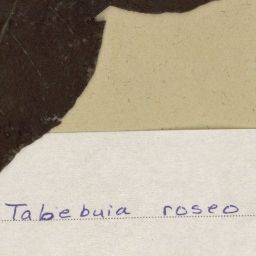 Tabebuia roseo